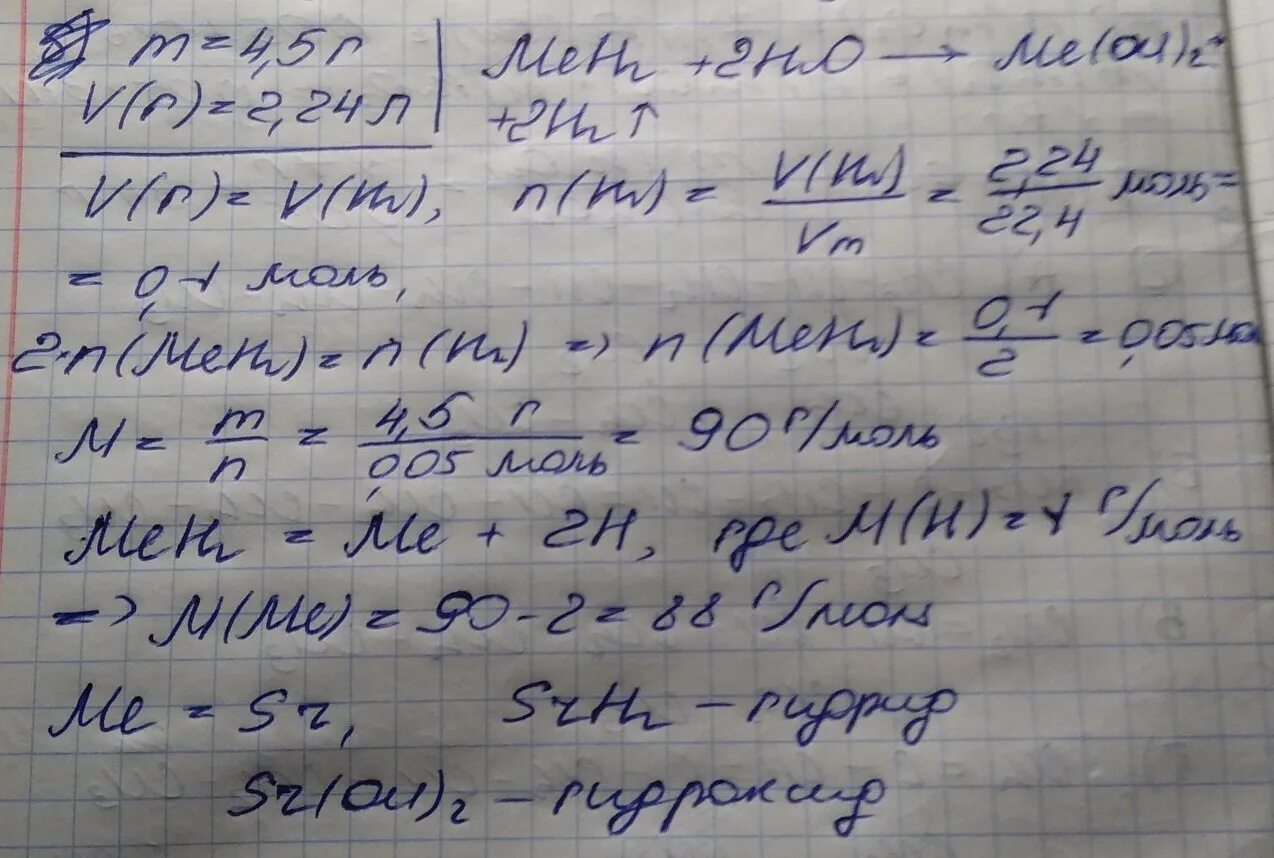 m = 4,5 г
V(г) = 2,24 л
MeH₂ + 2H₂O → Me(OH)₂ +
+ 2H₂↑
V(г) = V(H₂), n(H₂) = V(H₂)/Vm = 2,24/22,4 моль =
= 0,1 моль,
2·n(MeH₂) = n(H₂) => n(MeH₂) = 0,1/2 = 0,05 моль
M = m/n = 4,5 г/0,05 моль = 90 г/моль
MeH₂ = Me + 2H, где M(H) = 1 г/моль
=> M(Me) = 90 - 2 = 88 г/моль
Me = Sr, SrH₂ – гидрид
Sr(OH)₂ – гидроксид